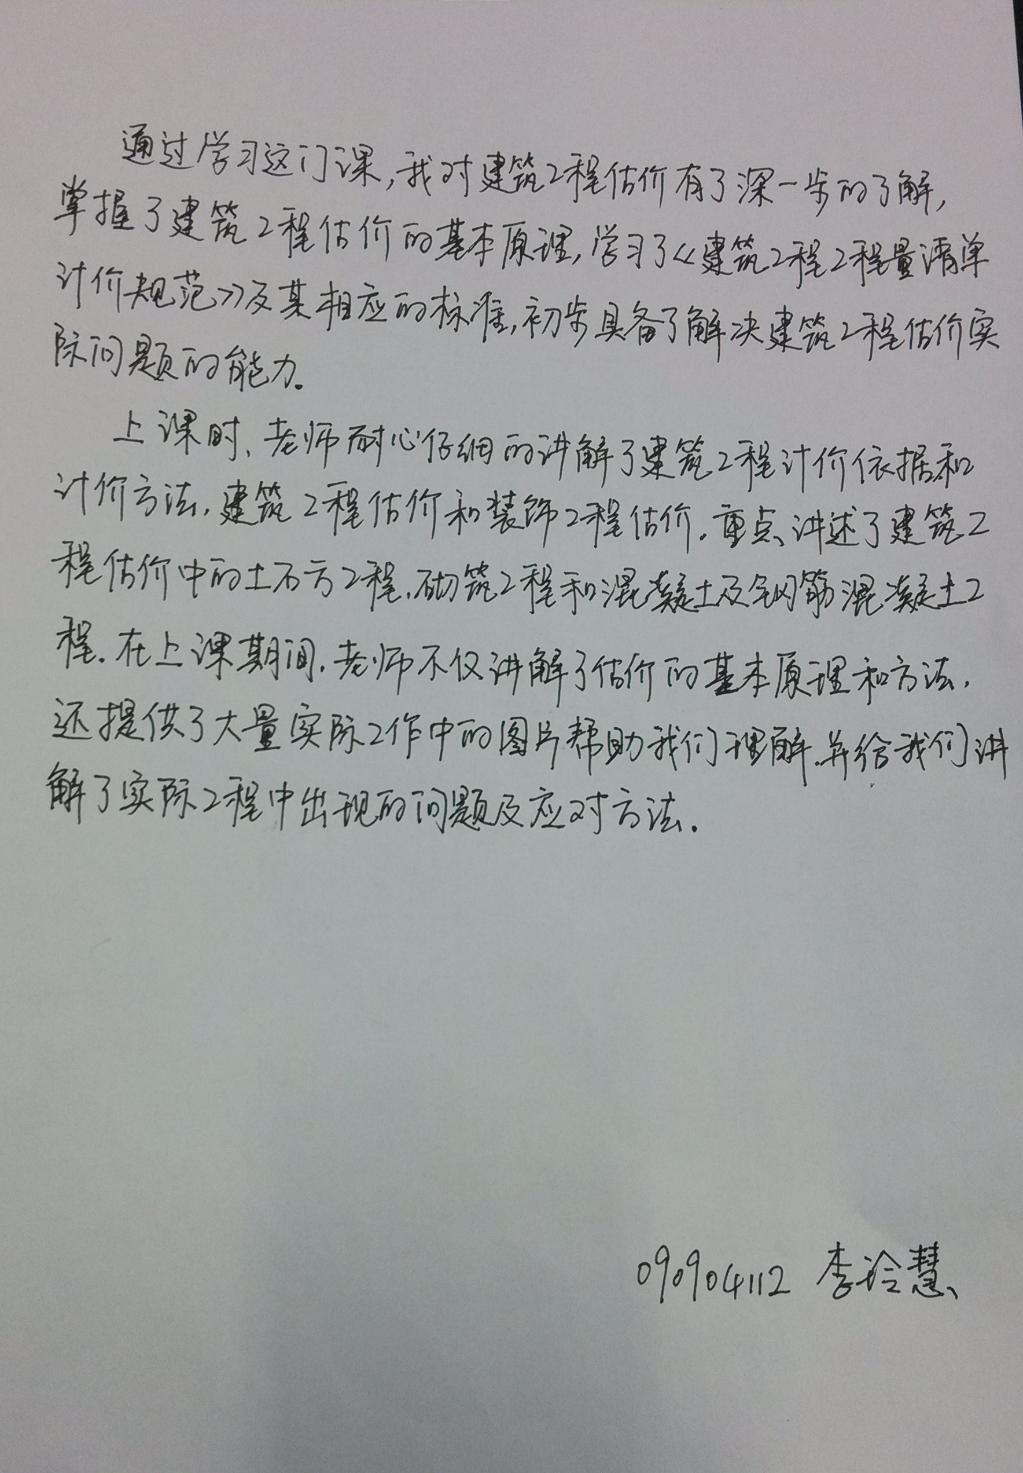 通过学习这门课,我对建筑工程估价有了深一步的了解,
掌握了建筑工程估价的基本原理,学习了《建筑工程工程量清单
计价规范》及其相应的标准,初步具备了解决建筑工程估价实
际问题的能力。
上课时、老师耐心仔细的讲解了建筑工程计价依据和
计价方法、建筑工程估价和装饰工程估价。重点讲述了建筑工
程估价中的土石方工程、砌筑工程和混凝土及钢筋混凝土工
程。在上课期间,老师不仅讲解了估价的基本原理和方法,
还提供了大量实际工作中的图片帮助我们理解,并给我们讲
解了实际工程中出现的问题及应对方法。
090904112 李玲慧